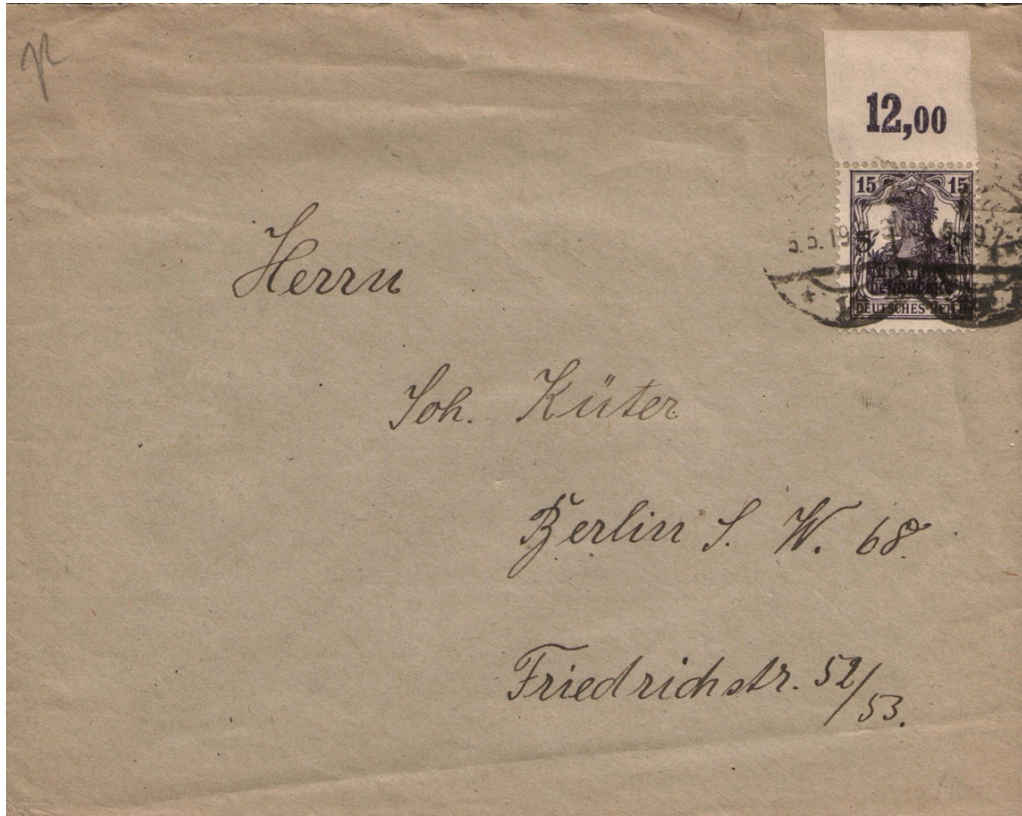 12,00
15 15
5. 5. 19
5
DEUTSCHES REICH
Herrn
Joh. Küter
Berlin S. W. 68.
Friedrichstr. 52/53.